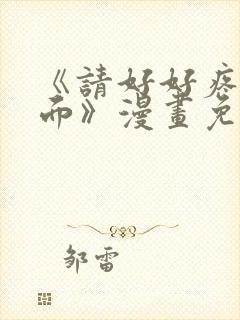 《請好好疼
而》漫畫免
邹雷